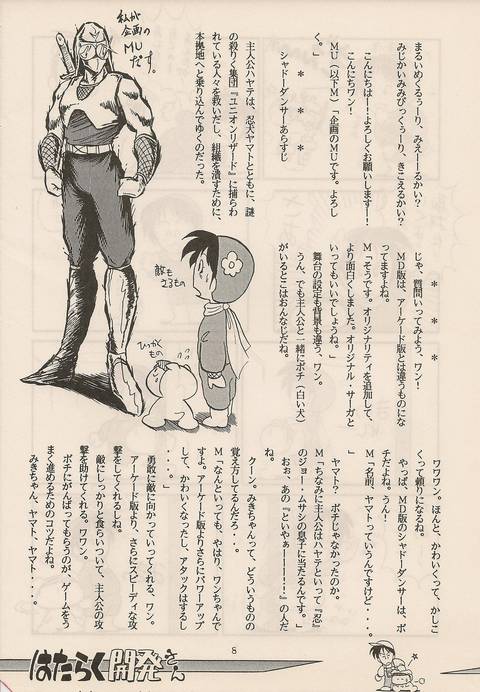 私が
企画の
MU
だす。
まるいめくるぅーり、みえーるかい?
みじかいみみぴっくぅーり、きこえるかい?
こんにちは!!よろしくお願いします!!
こんにちワン!
MU(以下M)「企画のMUです。よろし
く。」
* * *
シャドーダンサーあらすじ
主人公ハヤテは、忍犬ヤマトとともに、謎
の殺りく集団『ユニオンリザード』に捕らわ
れている人々を救いだし、組織を潰すために、
本拠地へと乗り込んでゆくのだった。
* * *
じゃ、質問いってみよう、ワン!
MD版は、アーケード版とは違うものにな
ってますよね。
M「そうです。オリジナリティを追加して、
より面白くしました。オリジナル・サーガと
いってもいいでしょうね。」
舞台の設定も背景も違う、ワン。
うん、でも主人公と一緒にポチ(白い犬)
がいるとこはおんなじだね。
敵も
ひっかく
もの
ワワワン。ほんと、かわいくって、かしこ
くって頼りになるね。
やっぱ、MD版のシャドーダンサーは、ポ
チだよね。うん!
M「名前、ヤマトっていうんですけど・・・。
」
ヤマト?ポチじゃなかったのか。
M「ちなみに主人公はハヤテといって『忍』
のジョー・ムサシの息子に当たるんです。」
おぉ、あの『といやぁーーー!!』の人だ
ね。
クーン。みきちゃんって、どういうものの
覚え方してるんだろ・・。
M「なんといっても、やはり、ワンちゃんで
すよ。アーケード版よりさらにパワーアップ
して、かわいくなったし、アタックはするし
・・・・。」
勇敢に敵に向かっていってくれる、ワン。
アーケード版より、さらにスピーディな攻
撃をしてくれるしね。
敵にしっかりと食らいついて、主人公の攻
撃を助けてくれる。ワワン。
ポチにがんばってもらうのが、ゲームをう
まく進めるためのコツだよね。
みきちゃん、ヤマト、ヤマト・・・・。
8
はたらく開発さん